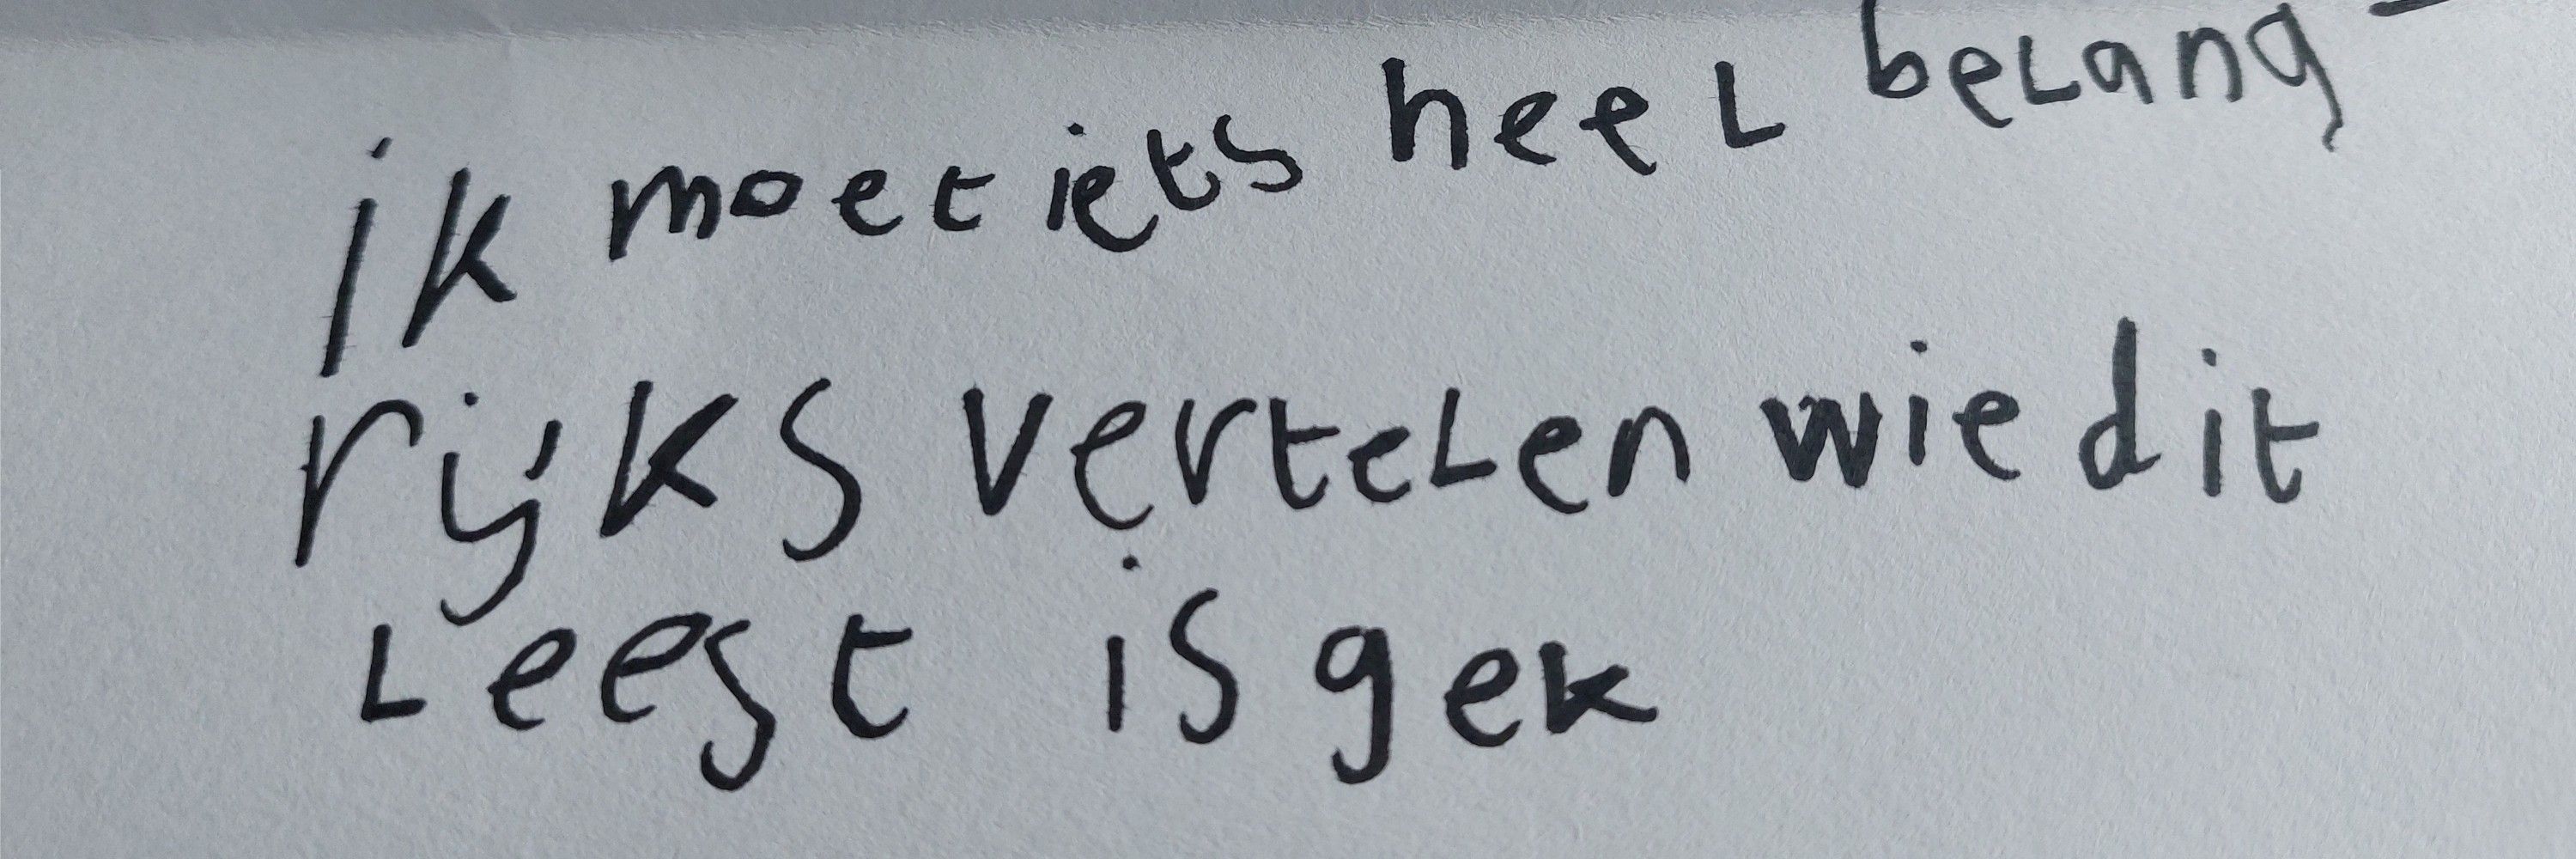 ik moet iets heel belang-
rijks vertelen wie dit
leest is gek